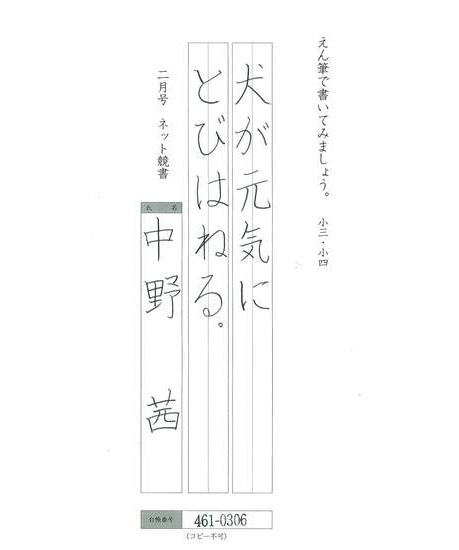 えん筆で書いてみましょう。 小三・小四
犬が元気に
とびはねる。
二月号 ネット競書
氏名
中野 茜
台帳番号 461-0306
(コピー不可)